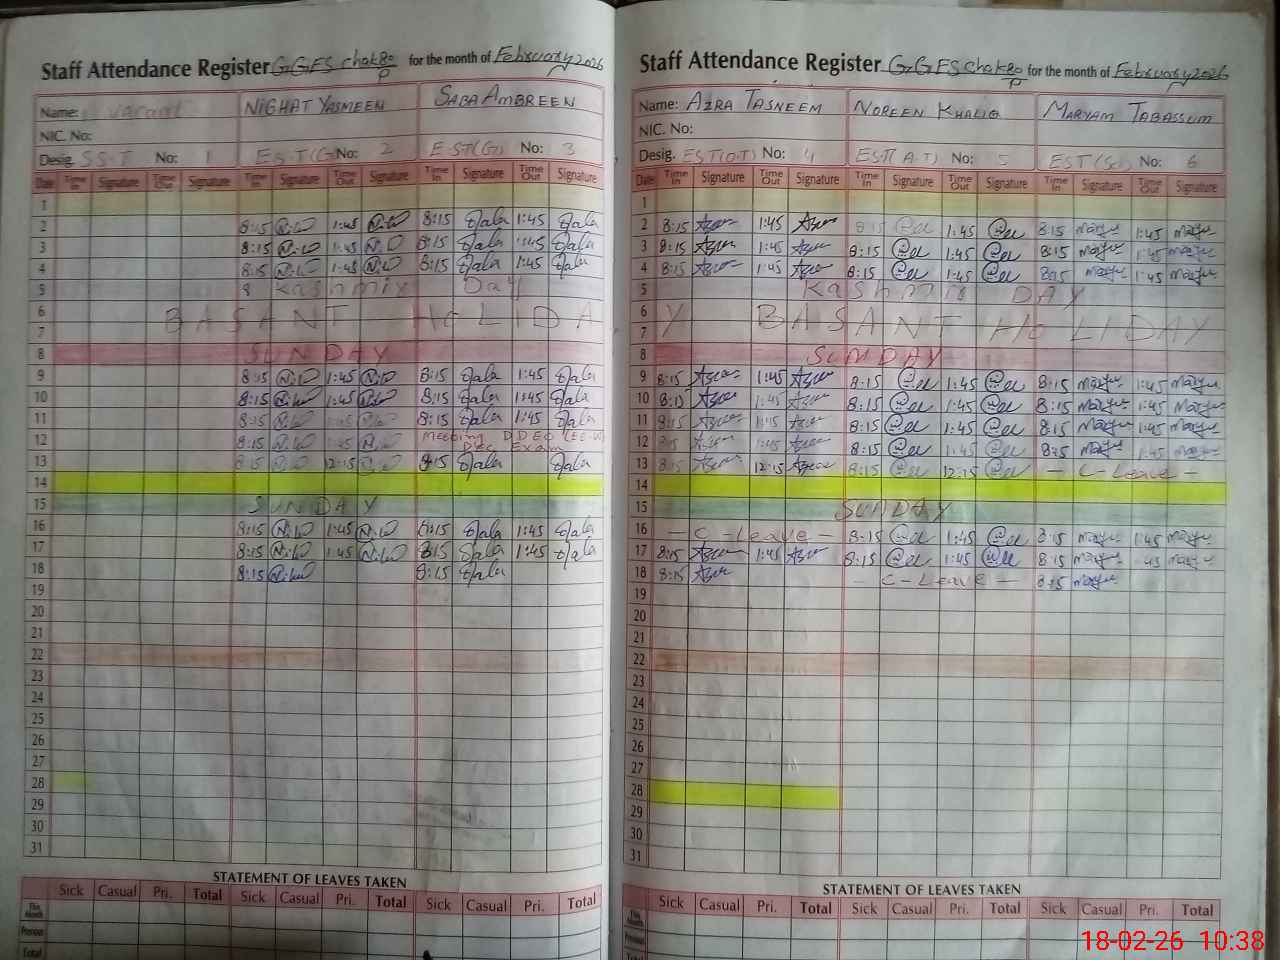 Staff Attendance Register GGES chak 80/P for the month of February 2026
Name: Vacant NIGHAT YASMEEN SABA AMBREEN
NIC. No:
Desig. SS.T No: 1 E.S.T(G) No: 2 E.ST(G) No: 3
Date Time In Signature Time Out Signature Time In Signature Time Out Signature Time In Signature Time Out Signature
1
2 8:15 1:45 8:15 1:45
3 8:15 1:45 8:15 1:45
4 8:15 1:45 8:15 1:45
5 8 Kashmir Day
6 BASANT HoLIDA
7
8 SUNDAY
9 8:15 1:45 8:15 1:45
10 8:15 1:45 8:15 1:45
11 8:15 1:45 8:15 1:45
12 8:15 1:45 Meeting DDEO (EE-W)
Exam
13 8:15 12:15 8:15
14
15 SUNDAY
16 8:15 1:45 8:15 1:45
17 8:15 1:45 8:15 1:45
18 8:15 8:15
19
20
21
22
23
24
25
26
27
28
29
30
31
STATEMENT OF LEAVES TAKEN
Sick Casual Pri. Total Sick Casual Pri. Total Sick Casual Pri. Total
This Month
Previous
Total
Staff Attendance Register GGES chak 80/P for the month of February 2026
Name: AZRA TASNEEM NOREEN KHALIQ MARYAM TABASSUM
NIC. No:
Desig. EST(O.T) No: 4 EST(A.T) 5 EST(Sci) No: 6
Date Time In Signature Time Out Signature Time In Signature Time Out Signature Time In Signature Time Out Signature
1
2 8:15 1:45 8:15 1:45 8:15 1:45
3 8:15 1:45 8:15 1:45 8:15 1:45
4 8:15 1:45 8:15 1:45 8:15 1:45
5 Kashmir DAY
6 Y BASANT HoLIDAY
7
8 SUNDAY
9 8:15 1:45 8:15 1:45 8:15 1:45
10 8:15 1:45 8:15 1:45 8:15 1:45
11 8:15 1:45 8:15 1:45 8:15 1:45
12 8:15 1:45 8:15 1:45 8:15 1:45
13 8:15 12:15 8:15 12:15 - C-Leave -
14
15 SUNDAY
16 - C-Leave - 8:15 1:45 8:15 1:45
17 8:15 1:45 8:15 1:45 8:15 :45
18 8:15 - C-Leave - 8:15
19
20
21
22
23
24
25
26
27
28
29
30
31
STATEMENT OF LEAVES TAKEN
Sick Casual Pri. Total Sick Casual Pri. Total Sick Casual Pri. Total
This Month
Previous
Total
18-02-26 10:38